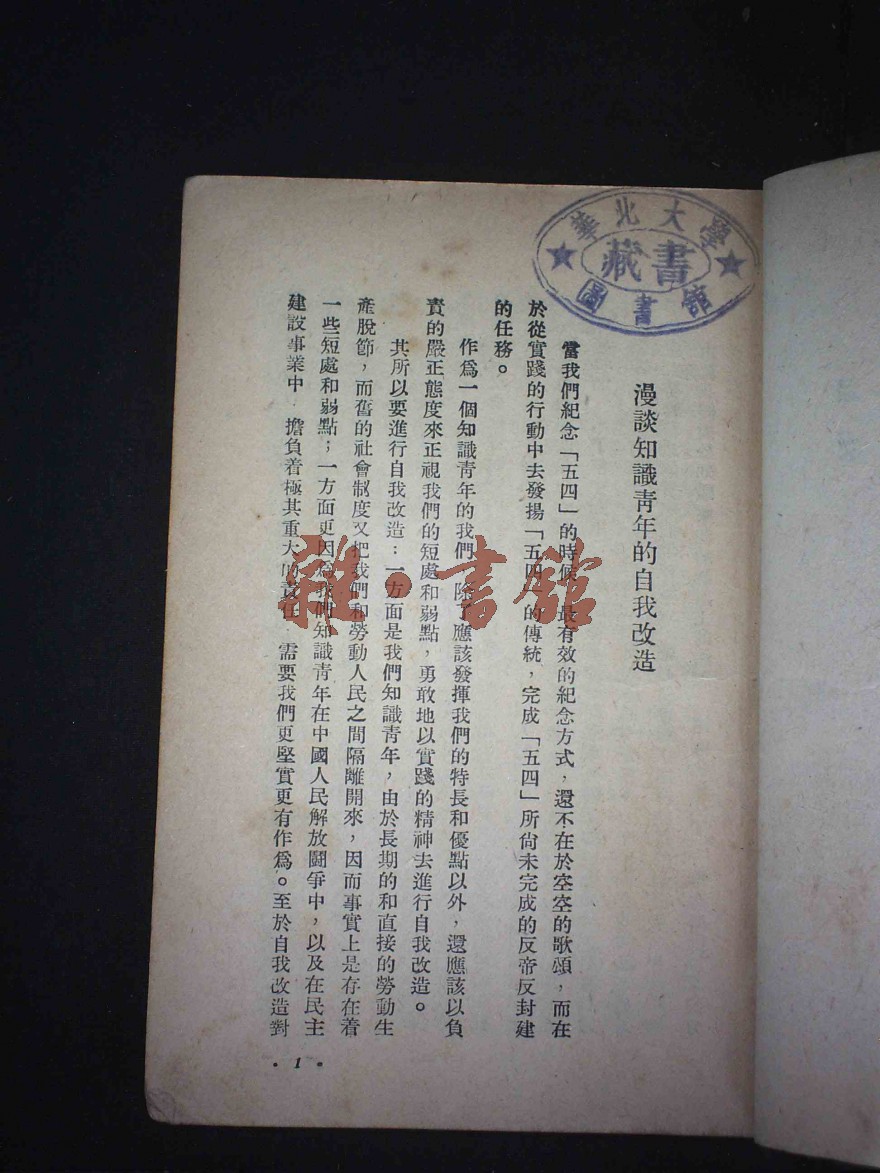 華北大學
藏書
圖書館
漫談知識靑年的自我改造
當我們紀念「五四」的時候，最有效的紀念方式，還不在於空空的歌頌，而在
於從實踐的行動中去發揚「五四」的傳統，完成「五四」所尙未完成的反帝反封建
的任務。
作爲一個知識靑年的我們，除了應該發揮我們的特長和優點以外，還應該以負
責的嚴正態度來正視我們的短處和弱點，勇敢地以實踐的精神去進行自我改造。
其所以要進行自我改造：一方面是我們知識靑年，由於長期的和直接的勞動生
產脫節，而舊的社會制度又把我們和勞動人民之間隔離開來，因而事實上是存在着
一些短處和弱點；一方面更因爲我們知識靑年在中國人民解放鬪爭中，以及在民主
建設事業中，擔負着極其重大的責任，需要我們更堅實更有作爲。至於自我改造對
• 1 •
雜·書館